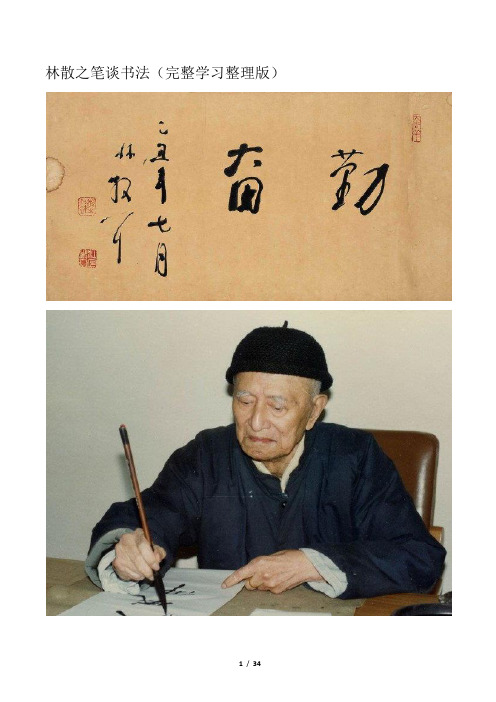 林散之笔谈书法（完整学习整理版）
勤奋
乙丑年七月
林散
1 / 34